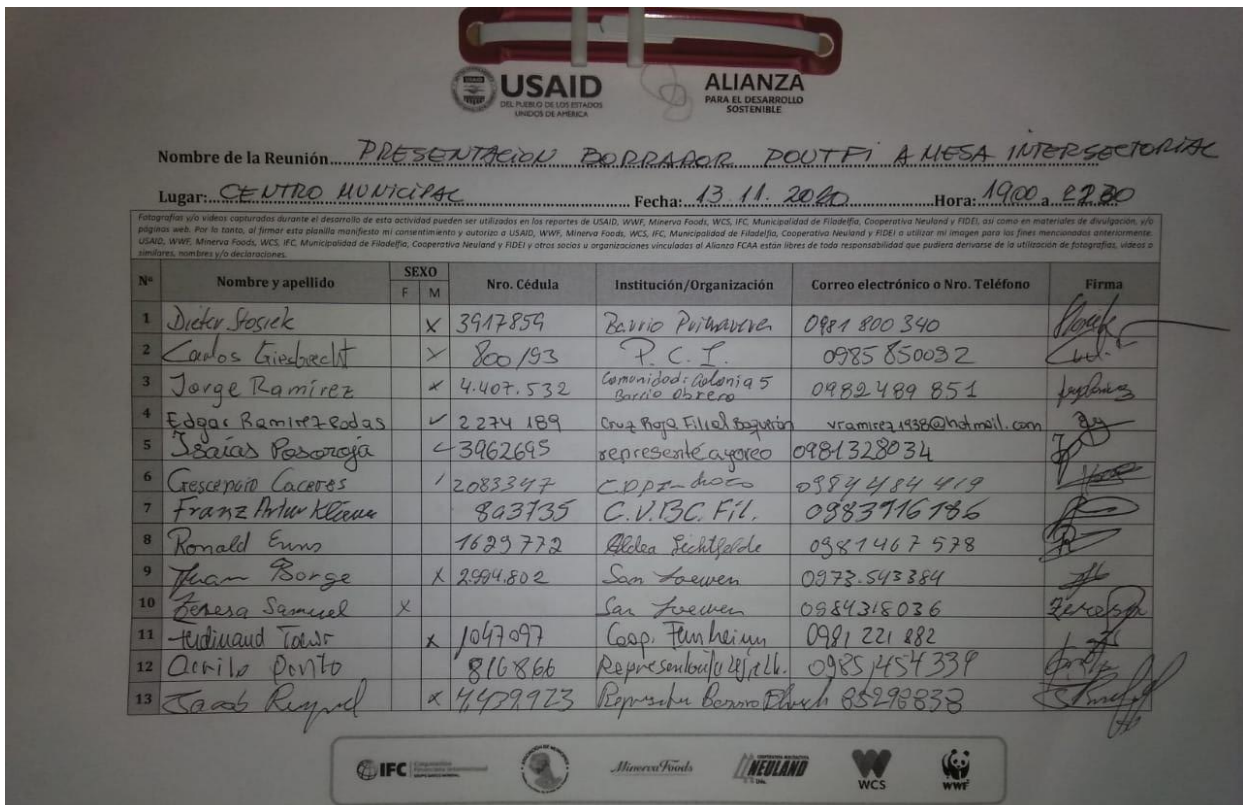 USAID
DEL PUEBLO DE LOS ESTADOS
UNIDOS DE AMÉRICA
ALIANZA
PARA EL DESARROLLO
SOSTENIBLE
Nombre de la Reunión PRESENTACION BORRADOR POUTFI A MESA INTERSECTORIAL
Lugar: CENTRO MUNICIPAL Fecha: 13.11.2020 Hora: 19:00 a 22.30
Fotografías y/o videos capturados durante el desarrollo de esta actividad pueden ser utilizados en los reportes de USAID, WWF, Minerva Foods, WCS, IFC, Municipalidad de Filadelfia, Cooperativa Neuland y FIDEI, así como en materiales de divulgación, y/o
páginas web. Por lo tanto, al firmar esta planilla manifiesto mi consentimiento y autorizo a USAID, WWF, Minerva Foods, WCS, IFC, Municipalidad de Filadelfia, Cooperativa Neuland y FIDEI a utilizar mi imagen para los fines mencionados anteriormente.
USAID, WWF, Minerva Foods, WCS, IFC, Municipalidad de Filadelfia, Cooperativa Neuland y FIDEI y otros socios u organizaciones vinculadas al Alianza FCAA están libres de toda responsabilidad que pudiera derivarse de la utilización de fotografías, videos o
similares, nombres y/o declaraciones.
Nº Nombre y apellido SEXO Nro. Cédula Institución/Organización Correo electrónico o Nro. Teléfono Firma
F M
1 Dieter Stosiek X 3917859 Barrio Primavera 0981 800 340
2 Carlos Giesbrecht X 800193 P.C.I. 0985 850032
3 Jorge Ramírez x 4.407.532 Comunidad: Colonia 5 Barrio Obrero 0982 489 851
4 Edgar Ramirez Rodas 2274 189 Cruz Roja Filial Boquerón vramirez1938@hotmail.com
5 Isaías Posoraja 3962695 represente ayoreo 0981328034
6 Crescencio Caceres 2083347 0984 484 419
7 Franz Artur Klassen 803735 C.V.B.C. Fil. 0983716786
8 Ronald Enns 1629772 Aldea Lichtfelde 0981467 578
9 Borge X 2.994.802 San Loewen 0973.543384
10 Teresa Samuel X San Loewen 0984318036 Teresa
11 Ferdinand Toews x 1047097 Coop. Fernheim 0981 221 882
12 816866 0985 454 339
13 Jacob x 85298838
IFC Corporación Financiera Internacional
Minerva Foods
NEULAND
WCS
WWF